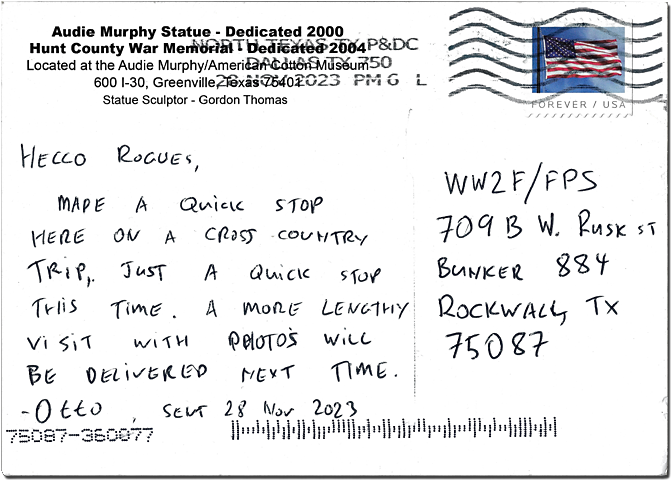 Audie Murphy Statue - Dedicated 2000
Hunt County War Memorial - Dedicated 2004
Located at the Audie Murphy/American Cotton Museum
600 I-30, Greenville, Texas 75401
Statue Sculptor - Gordon Thomas
NORTH TEXAS TX P&DC
DALLAS TX 750
28 NOV 2023 PM 6 L
FOREVER / USA
HELLO ROGUES,
MADE A QUICK STOP
HERE ON A CROSS COUNTRY
TRIP, JUST A QUICK STOP
THIS TIME. A MORE LENGTHY
VISIT WITH PHOTO'S WILL
BE DELIVERED NEXT TIME.
-OTTO, SENT 28 NOV 2023
WW2F/FPS
709 B W. RUSK ST
BUNKER 884
ROCKWALL, TX
75087
75087-360077